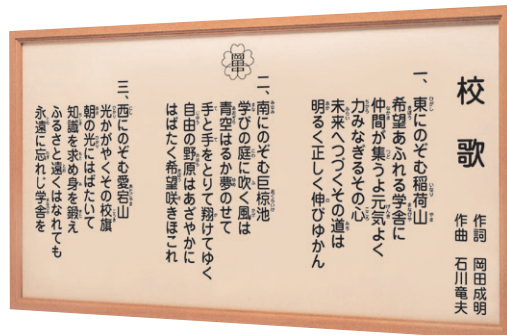 校歌
作詞 岡田成明
作曲 石川竜夫
一、東にのぞむ稲荷山
希望あふれる学舎に
仲間が集うよ元気よく
力みなぎるその心
未来へつづくその道は
明るく正しく伸びゆかん
二、南にのぞむ巨椋池
学びの庭に吹く風は
青空はるか夢のせて
手と手をとりて翔けてゆく
自由の野原はあざやかに
はばたく希望咲きほこれ
三、西にのぞむ愛宕山
光かがやくその校旗
朝の光にはばたいて
知識を求め身を鍛え
ふるさと遠くはなれても
永遠に忘れじ学舎を